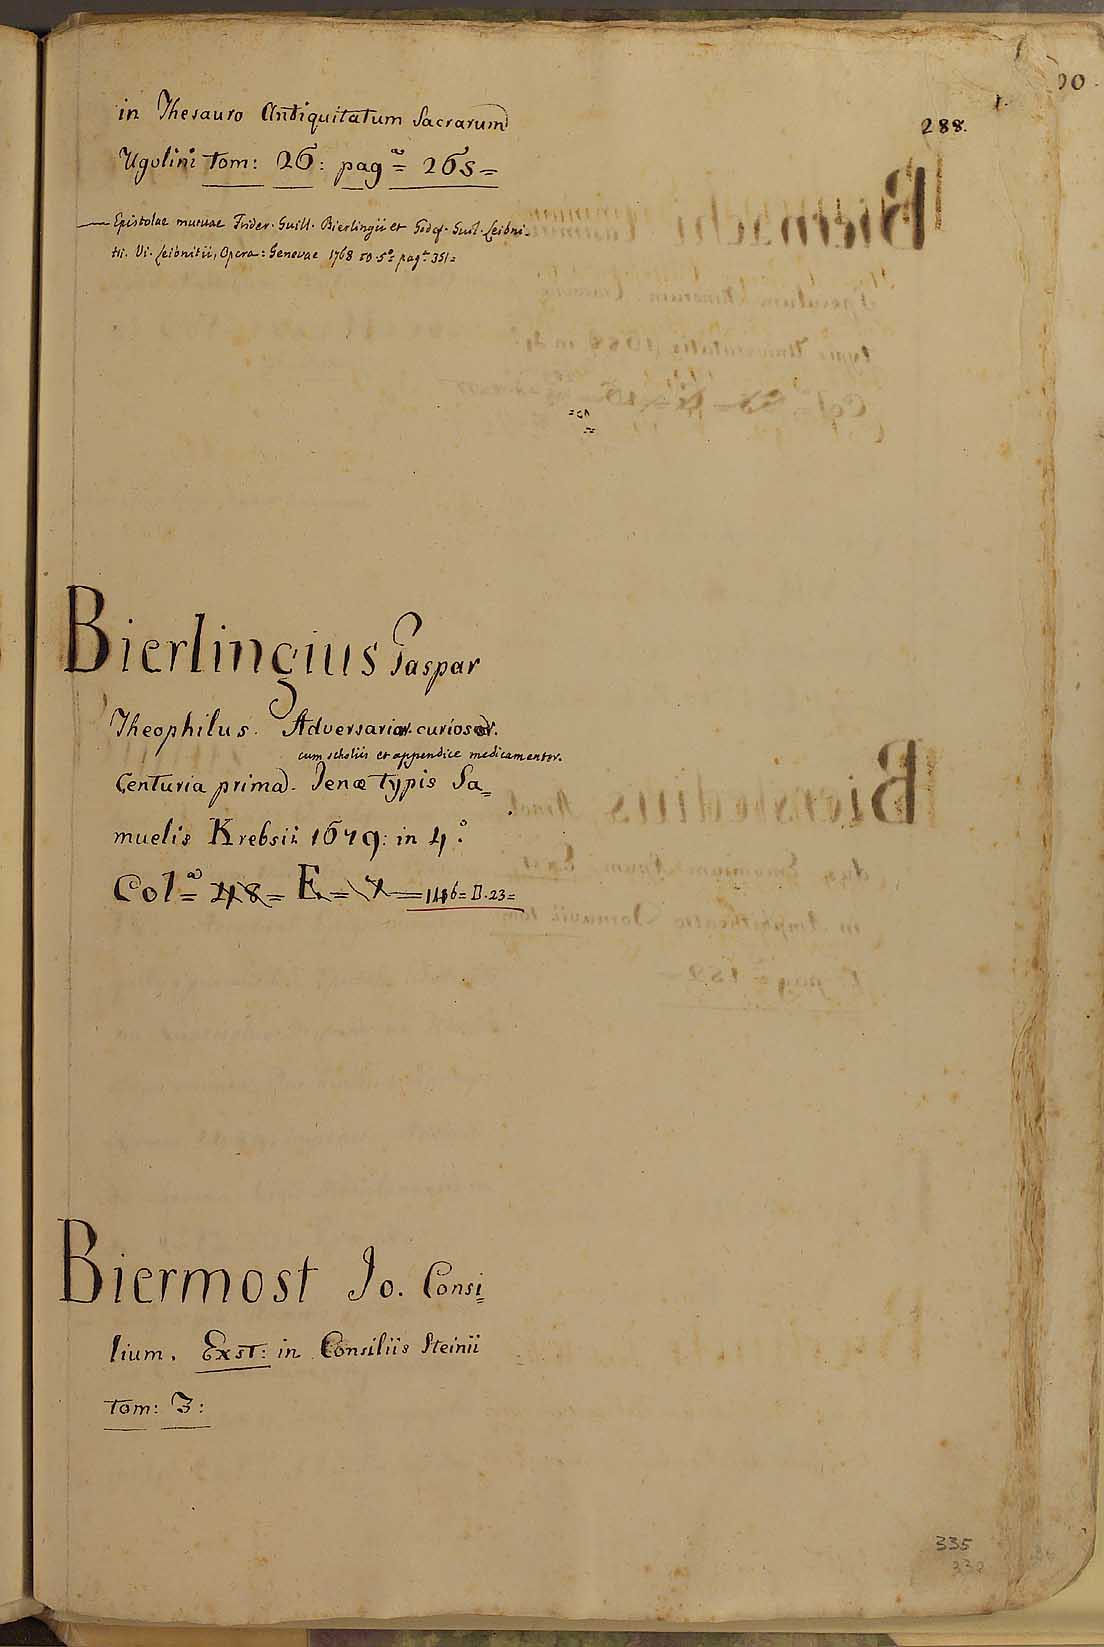 288.
in Thesauro Antiquitatum Sacrarum
Ugolini tom: 26: pag.ᵃ= 265=
Epistolae mutuae Frider. Guill. Bierlingii et Godef. Guil. Leibni-
tii. Vi. Leibnitii, Opera: Genevae 1768 to. 5º: pag.ᵃ 351=
Bierlingius Gaspar
Theophilus. Adversarior. curiosor.
cum scholiis et appendice medicamentor.
Centuria prima. Jenæ typis Sa=
muelis Krebsii 1679: in 4.º
Col=ᵃ 48= E= 7= 146= D.23=
Biermost Jo. Consi=
lium. Exst: in Consiliis Steinii
tom: 3:
335